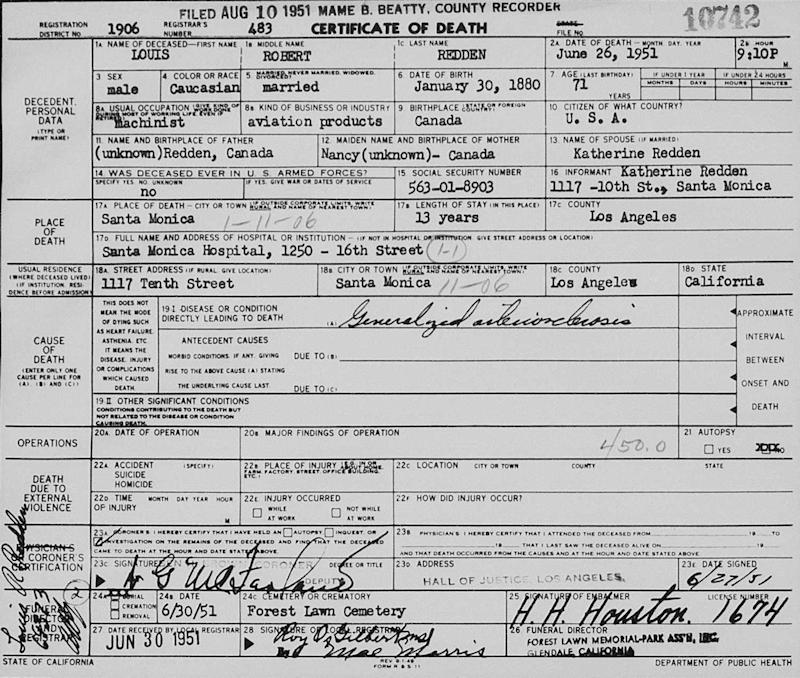 FILED AUG 10 1951 MAME B. BEATTY, COUNTY RECORDER
10742
REGISTRATION DISTRICT NO. 1906 REGISTRAR'S NUMBER 483 CERTIFICATE OF DEATH STATE FILE NO.
1A NAME OF DECEASED—FIRST NAME 1B MIDDLE NAME 1C LAST NAME 2A DATE OF DEATH—MONTH, DAY, YEAR 2B HOUR
LOUIS ROBERT REDDEN June 26, 1951 9:10P M.
DECEDENT PERSONAL DATA (TYPE OR PRINT NAME)
3 SEX 4 COLOR OR RACE 5 MARRIED, NEVER MARRIED, WIDOWED, DIVORCED? 6 DATE OF BIRTH 7 AGE (LAST BIRTHDAY) IF UNDER 1 YEAR IF UNDER 24 HOURS
male Caucasian married January 30, 1880 71 YEARS MONTHS DAYS HOURS MINUTES
8A USUAL OCCUPATION (GIVE KIND OF WORK DONE DURING MOST OF WORKING LIFE, EVEN IF RETIRED) 8B KIND OF BUSINESS OR INDUSTRY 9 BIRTHPLACE (STATE OR FOREIGN COUNTRY) 10 CITIZEN OF WHAT COUNTRY?
Machinist aviation products Canada U. S. A.
11 NAME AND BIRTHPLACE OF FATHER 12 MAIDEN NAME AND BIRTHPLACE OF MOTHER 13 NAME OF SPOUSE (IF MARRIED)
(unknown)Redden, Canada Nancy(unknown)- Canada Katherine Redden
14 WAS DECEASED EVER IN U. S. ARMED FORCES? 15 SOCIAL SECURITY NUMBER 16 INFORMANT Katherine Redden
SPECIFY YES, NO, UNKNOWN IF YES, GIVE WAR OR DATES OF SERVICE
no 563-01-8903 1117 -10th St., Santa Monica
PLACE OF DEATH
17A PLACE OF DEATH - CITY OR TOWN (IF OUTSIDE CORPORATE LIMITS, WRITE RURAL AND NAME OF NEAREST TOWN) 17B LENGTH OF STAY (IN THIS PLACE) 17C COUNTY
Santa Monica 1-11-06 13 years Los Angeles
17D FULL NAME AND ADDRESS OF HOSPITAL OR INSTITUTION - (IF NOT IN HOSPITAL OR INSTITUTION, GIVE STREET ADDRESS OR LOCATION)
Santa Monica Hospital, 1250 - 16th Street (1-1)
USUAL RESIDENCE (WHERE DECEASED LIVED) (IF INSTITUTION, RESIDENCE BEFORE ADMISSION)
18A STREET ADDRESS (IF RURAL, GIVE LOCATION) 18B CITY OR TOWN (IF OUTSIDE CORPORATE LIMITS, WRITE RURAL AND NAME OF NEAREST TOWN) 18C COUNTY 18D STATE
1117 Tenth Street Santa Monica 11-06 Los Angeles California
CAUSE OF DEATH (ENTER ONLY ONE CAUSE PER LINE FOR (A), (B) AND (C))
THIS DOES NOT MEAN THE MODE OF DYING SUCH AS HEART FAILURE, ASTHENIA, ETC. IT MEANS THE DISEASE, INJURY OR COMPLICATIONS WHICH CAUSED DEATH.
19-I DISEASE OR CONDITION DIRECTLY LEADING TO DEATH (A) Generalized arteriosclerosis
ANTECEDENT CAUSES
MORBID CONDITIONS, IF ANY, GIVING DUE TO (B)
RISE TO THE ABOVE CAUSE (A) STATING
THE UNDERLYING CAUSE LAST. DUE TO (C)
APPROXIMATE INTERVAL BETWEEN ONSET AND DEATH
19-II OTHER SIGNIFICANT CONDITIONS
CONDITIONS CONTRIBUTING TO THE DEATH BUT NOT RELATED TO THE DISEASE OR CONDITION CAUSING DEATH.
OPERATIONS
20A. DATE OF OPERATION 20B MAJOR FINDINGS OF OPERATION 450.0 21 AUTOPSY
YES NO
DEATH DUE TO EXTERNAL VIOLENCE
22A. ACCIDENT SUICIDE HOMICIDE (SPECIFY) 22B PLACE OF INJURY (E.G. IN OR ABOUT HOME, FARM, FACTORY, STREET, OFFICE BUILDING, ETC.) 22C LOCATION CITY OR TOWN COUNTY STATE
22D TIME OF INJURY MONTH DAY YEAR HOUR M 22E INJURY OCCURRED WHILE AT WORK NOT WHILE AT WORK 22F HOW DID INJURY OCCUR?
PHYSICIAN'S OR CORONER'S CERTIFICATION
23A CORONER'S: I HEREBY CERTIFY THAT I HAVE HELD AN AUTOPSY INQUEST, OR INVESTIGATION ON THE REMAINS OF THE DECEASED AND FIND THAT THE DECEASED CAME TO DEATH AT THE HOUR AND DATE STATED ABOVE.
23B PHYSICIAN'S: I HEREBY CERTIFY THAT I ATTENDED THE DECEASED FROM 19 TO
19 THAT I LAST SAW THE DECEASED ALIVE ON 19
AND THAT DEATH OCCURRED FROM THE CAUSES AND AT THE HOUR AND DATE STATED ABOVE
23C SIGNATURE CORONER DEGREE OR TITLE 23D ADDRESS 23E DATE SIGNED
DEPUTY HALL OF JUSTICE, LOS ANGELES 6/27/51
FUNERAL DIRECTOR AND REGISTRAR
Louis R Redden
2
24A BURIAL CREMATION REMOVAL 24B DATE 24C CEMETERY OR CREMATORY 25 SIGNATURE OF EMBALMER LICENSE NUMBER
6/30/51 Forest Lawn Cemetery H. H. Houston. 1674
27 DATE RECEIVED BY LOCAL REGISTRAR 28 SIGNATURE OF LOCAL REGISTRAR 26 FUNERAL DIRECTOR
JUN 30 1951 Roy O. Gilbert Mae Morris FOREST LAWN MEMORIAL-PARK ASS'N, INC.
GLENDALE, CALIFORNIA
STATE OF CALIFORNIA REV 9-1-49 FORM R & S 11 DEPARTMENT OF PUBLIC HEALTH